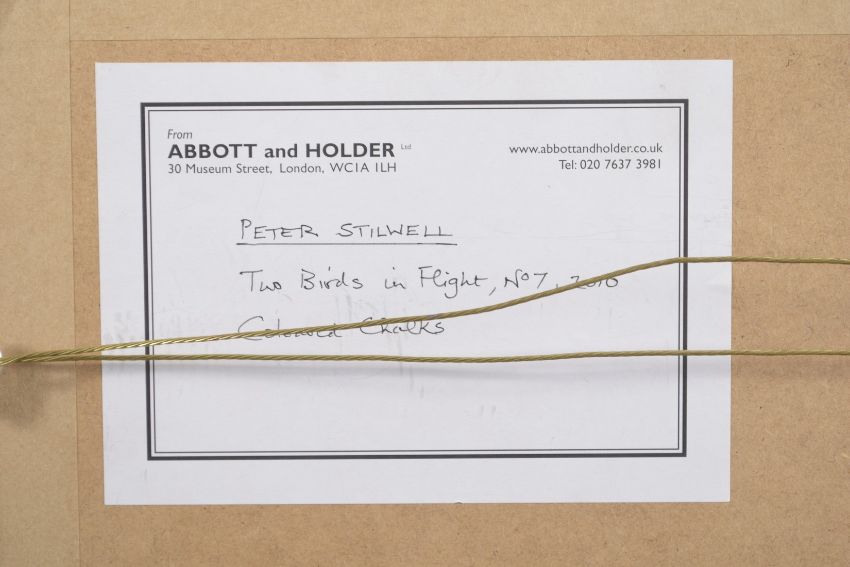 From
ABBOTT and HOLDER Ltd
30 Museum Street, London, WC1A 1LH
www.abbottandholder.co.uk
Tel: 020 7637 3981
PETER STILWELL
Two Birds in Flight, No 7, 2010
Coloured Chalks